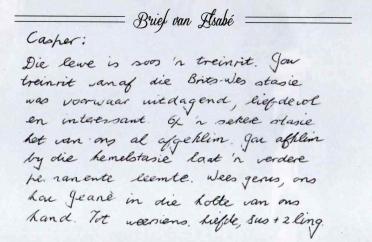 Brief van Elsabé
Casper:
Die lewe is soos 'n treinrit. Jou
treinrit vanaf die Brits-Wes stasie
was voorwaar uitdagend, liefdevol
en interessant. By 'n sekere stasie
het van ons al afgeklim. Jou afklim
by die hemelstasie laat 'n verdere
permanente leemte. Wees gerus, ons
hou Jeanè in die holte van ons
hand. Tot weersiens. liefde, sus + 2ling.